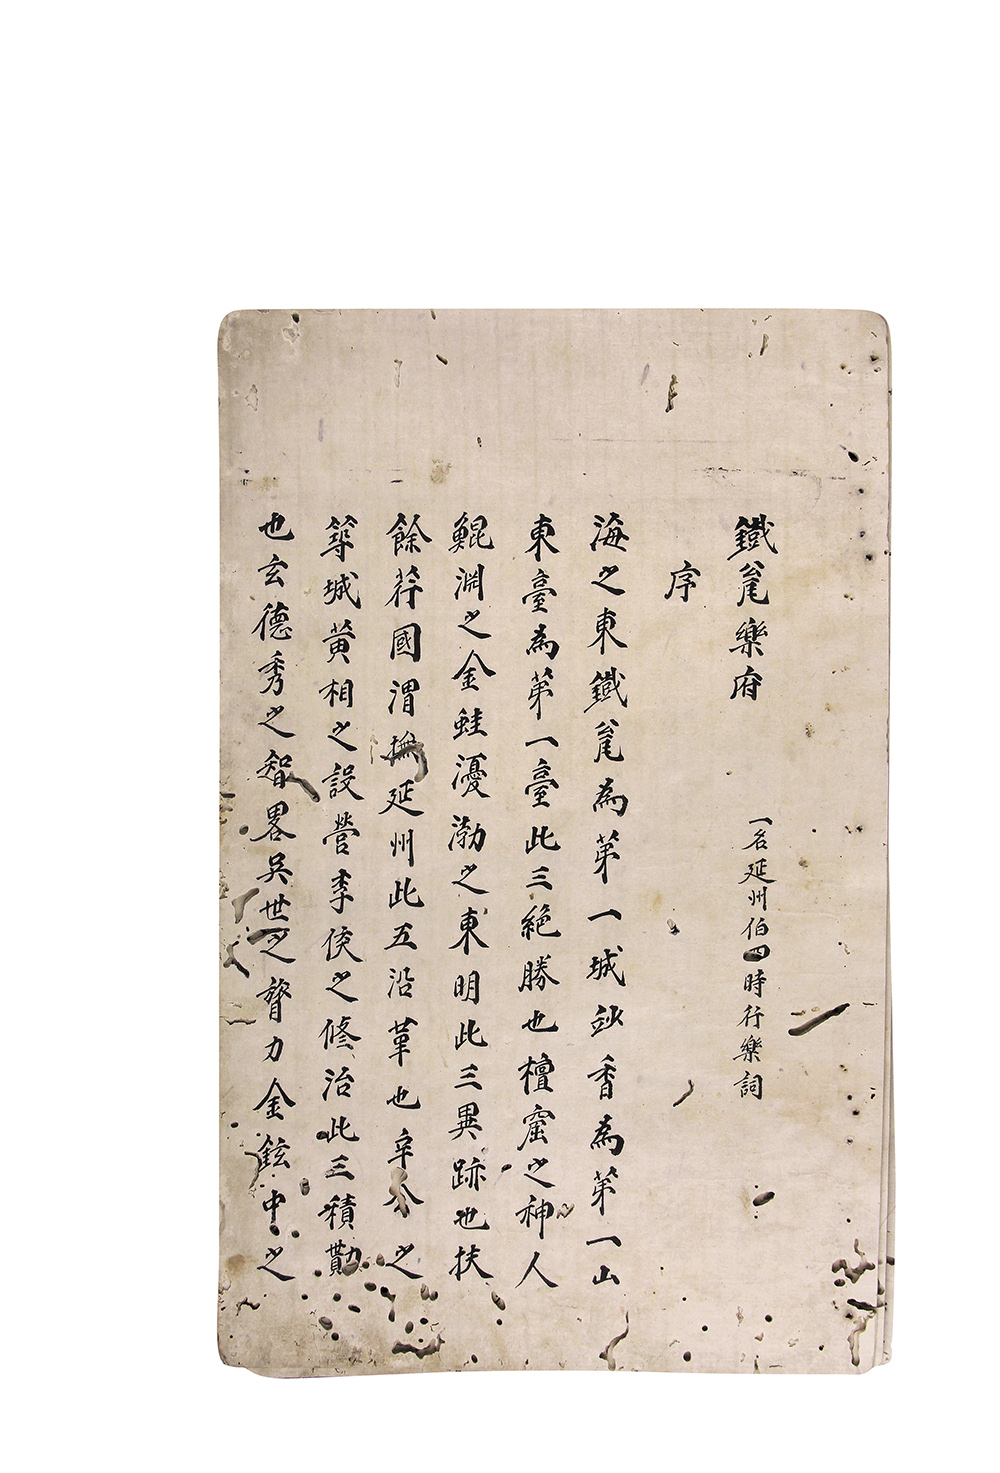 鐵瓮樂府 一名延州伯四時行樂詞
序
海之東鐵瓮為第一城妙香為第一山
東臺為第一臺此三絶勝也檀窟之神人
鯤淵之金蛙瀀渤之東明此三異跡也扶
餘荇國渭撫延州此五沿革也辛 之
築城黃相之設營李侯之修治此三積勩
也玄德秀之智畧吳世之膂力金鉉中之